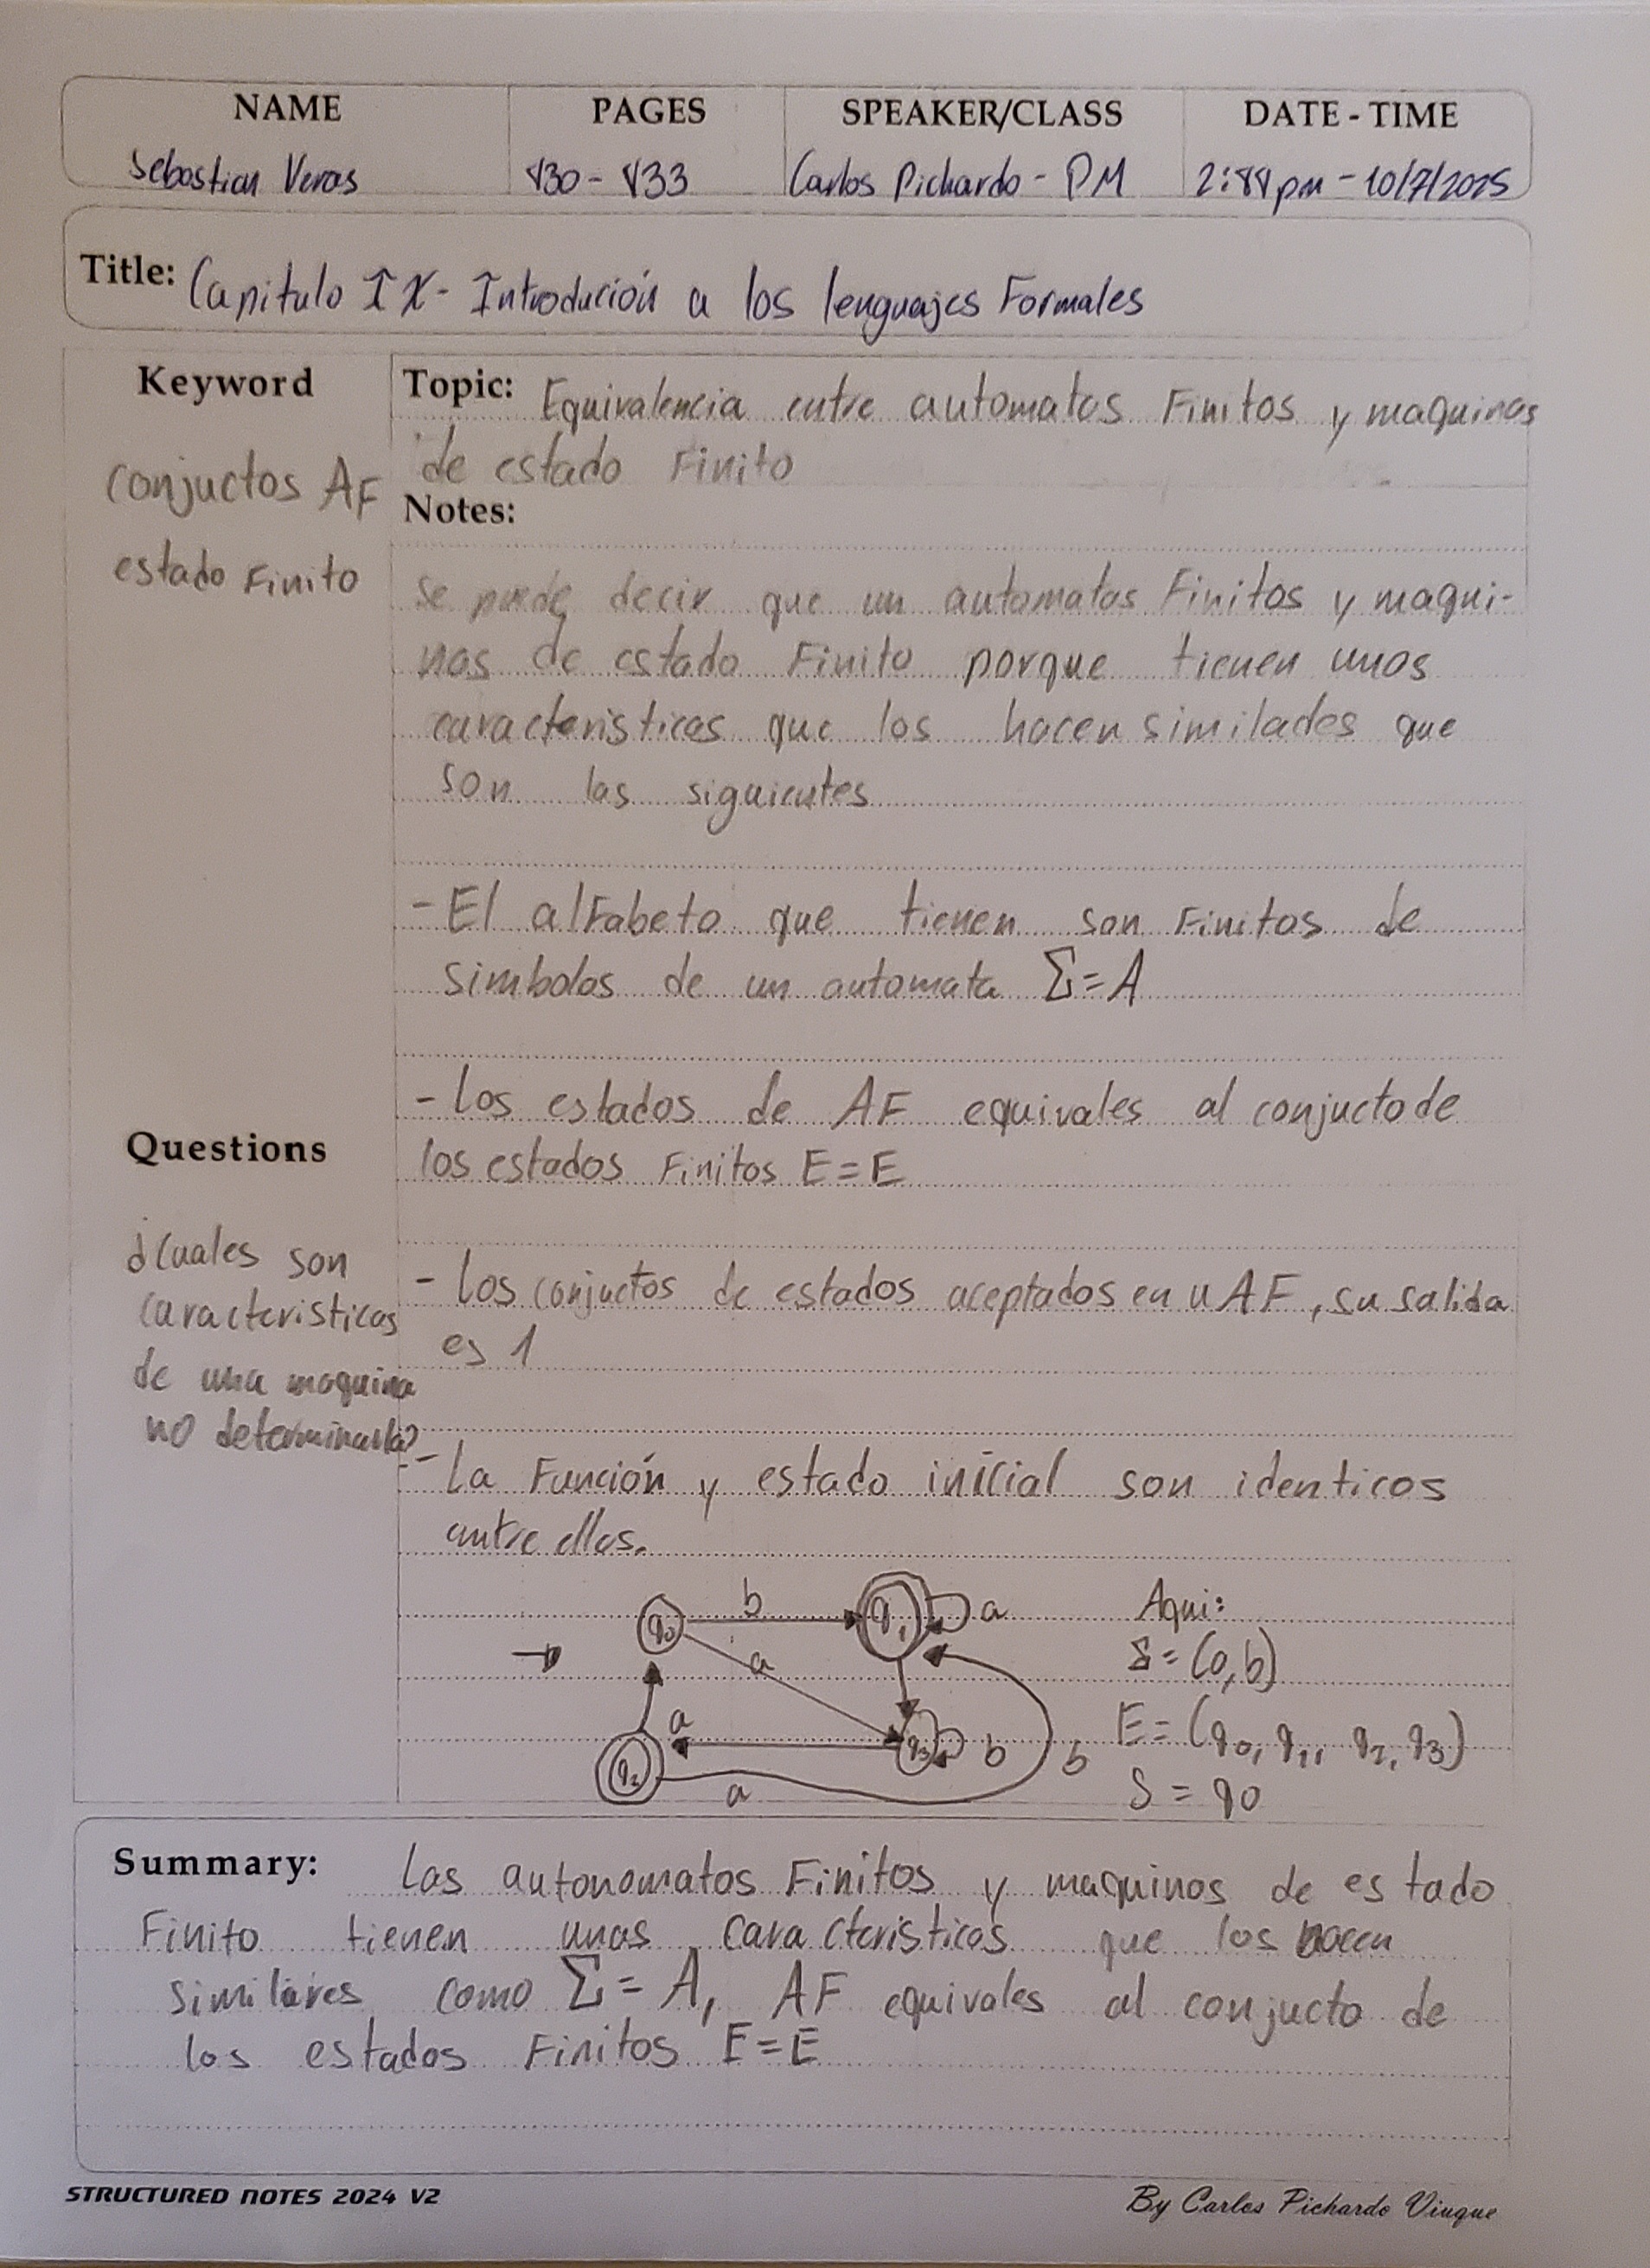 NAME PAGES SPEAKER/CLASS DATE - TIME
Sebastian Veras 430 - 433 Carlos Pichardo - PM 2:44 pm - 10/7/2025
Title: Capitulo IX - Introdución a los lenguajes Formales
Keyword
conjuctos AF
estado Finito
Topic: Equivalencia entre automatos Finitos y maquinas
de estado Finito
Notes:
se puede decir que un automatos Finitos y maqui-
nas de estado Finito porque tienen unos
caracteristicas que los hacen similades que
son las siguientes
- El alFabeto que tienen son Finitos de
simbolos de un automata Σ=A
- los estados de AF equivales al conjucto de
los estados Finitos E=E
- los conjuctos de estados aceptados en u AF, su salida
es 1
- La Función y estado inicial son identicos
entre ellas.
Questions
¿Cuales son
caracteristicas
de una maquina
no
q0 b q1 a
a
a
q2 q3 b b
a
Aqui:
S = (a,b)
E = (q0, q1, q2, q3)
S = q0
Summary: Las autonomatos Finitos y maquinas de estado
Finito tienen unas caracteristicas que los hacen
similares como Σ = A, AF equivales al conjucto de
los estados Finitos E=E
STRUCTURED NOTES 2024 V2
By Carlos Pichardo Viuque